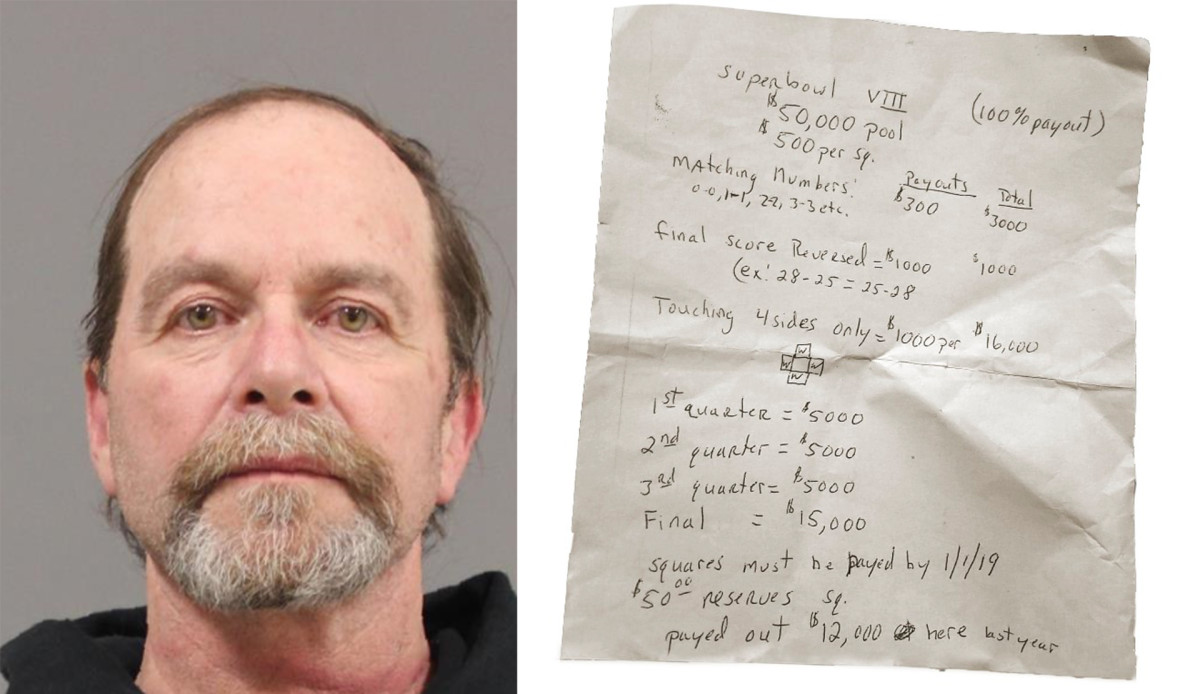 superbowl VIII (100% payout)
$50,000 pool
$500 per sq.
Matching Numbers: Payouts Total
0-0, 1-1, 2-2, 3-3 etc. $300 $3000
final score Reversed = $1000 $1000
(ex: 28-25 = 25-28
Touching 4 sides only = $1000 per $16,000
W
W W
W
1st quarter = $5000
2nd quarter = $5000
3rd quarter = $5000
Final = $15,000
squares must be payed by 1/1/19
$50 00 reserves sq.
payed out $12,000 here last year